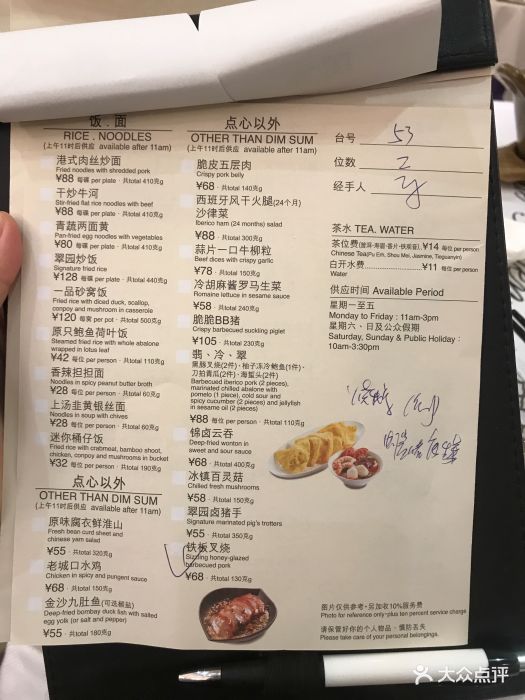 饭 . 面
RICE . NOODLES
(上午11时后供应 available after 11am)
港式肉丝炒面
Fried noodles with shredded pork
¥88 每碟 per plate · 共total 410克g
干炒牛河
Stir-fried flat rice noodles with beef
¥88 每碟 per plate · 共total 410克g
青蔬两面黄
Pan-fried egg noodles with vegetables
¥80 每碟 per plate · 共total 410克g
翠园炒饭
Signature fried rice
¥128 每碟 per plate · 共total 440克g
一品砂窝饭
Fried rice with diced duck, scallop,
conpoy and mushroom in casserole
¥120 每窝 per pot · 共total 500克g
原只鲍鱼荷叶饭
Steamed fried rice with whole abalone
wrapped in lotus leaf
¥42 每位 per person · 共total 110克g
香辣担担面
Noodles in spicy peanut butter broth
¥28 每位 per person · 共total 60克g
上汤韭黄银丝面
Noodles in soup with chives
¥28 每位 per person · 共total 60克g
迷你桶仔饭
Fried rice with crabmeat, bamboo shoot,
chicken, conpoy and mushrooms in bucket
¥32 每位 per person · 共total 190克g
点心以外
OTHER THAN DIM SUM
(上午11时后供应 available after 11am)
原味腐衣鲜淮山
Fresh bean curd sheet and
chinese yam salad
¥55 共total 320克g
老城口水鸡
Chicken in spicy and pungent sauce
¥68 共total 150克g
金沙九肚鱼(可选椒盐)
Deep-fried bombay duck fish with salted
egg yolk (or salt and pepper)
¥55 · 共total 180克g
点心以外
OTHER THAN DIM SUM
(上午11时后供应 available after 11am)
脆皮五层肉
Crispy pork belly
¥68 · 共total 140克g
西班牙风干火腿(24个月)
沙律菜
Iberico ham (24 months) salad
¥88 · 共total 300克g
蒜片一口牛柳粒
Beef dices with crispy garlic
¥78 · 共total 150克g
冷胡麻酱罗马生菜
Romaine lettuce in sesame sauce
¥58 · 共total 240克g
脆脆BB猪
Crispy barbecued suckling piglet
¥105 · 共total 230克g
翡、冷、翠
黑豚叉烧(2件)·柚子冻冷鲍鱼(1件)·
刀拍青瓜(2件)·海蜇头(2件)
Barbecued iberico pork (2 pieces),
marinated chilled abalone with
pomelo (1 piece), cold sour and
spicy cucumber (2 pieces) and jellyfish
in sesame oil (2 pieces)
¥88 每位 per person · 共total 110克g
锦卤云吞
Deep-fried wonton in
sweet and sour sauce
¥68 · 共total 400克g
冰镇百灵菇
Chilled fresh mushrooms
¥58 · 共total 150克g
翠园卤猪手
Signature marinated pig's trotters
¥55 · 共total 350克g
铁板叉烧
Sizzling honey-glazed
barbecued pork
¥68 · 共total 130克g
台号 53
位数 2
经手人
茶水 TEA. WATER
茶位费(普洱·寿眉·香片·铁观音) ¥14 每位 per person
Chinese Tea(Pu Erh, Shou Mei, Jasmine, Tieguanyin)
白开水费 ¥11 每位 per person
Water
供应时间 Available Period
星期一至五
Monday to Friday : 11am-3pm
星期六、日及公众假期
Saturday, Sunday & Public Holiday :
10am-3:30pm
图片仅供参考·另加收10%服务费
Photo for reference only·plus ten percent service charge
请保管好你的个人物品、慎防丢失
Please take care of your personal belongings.
大众点评